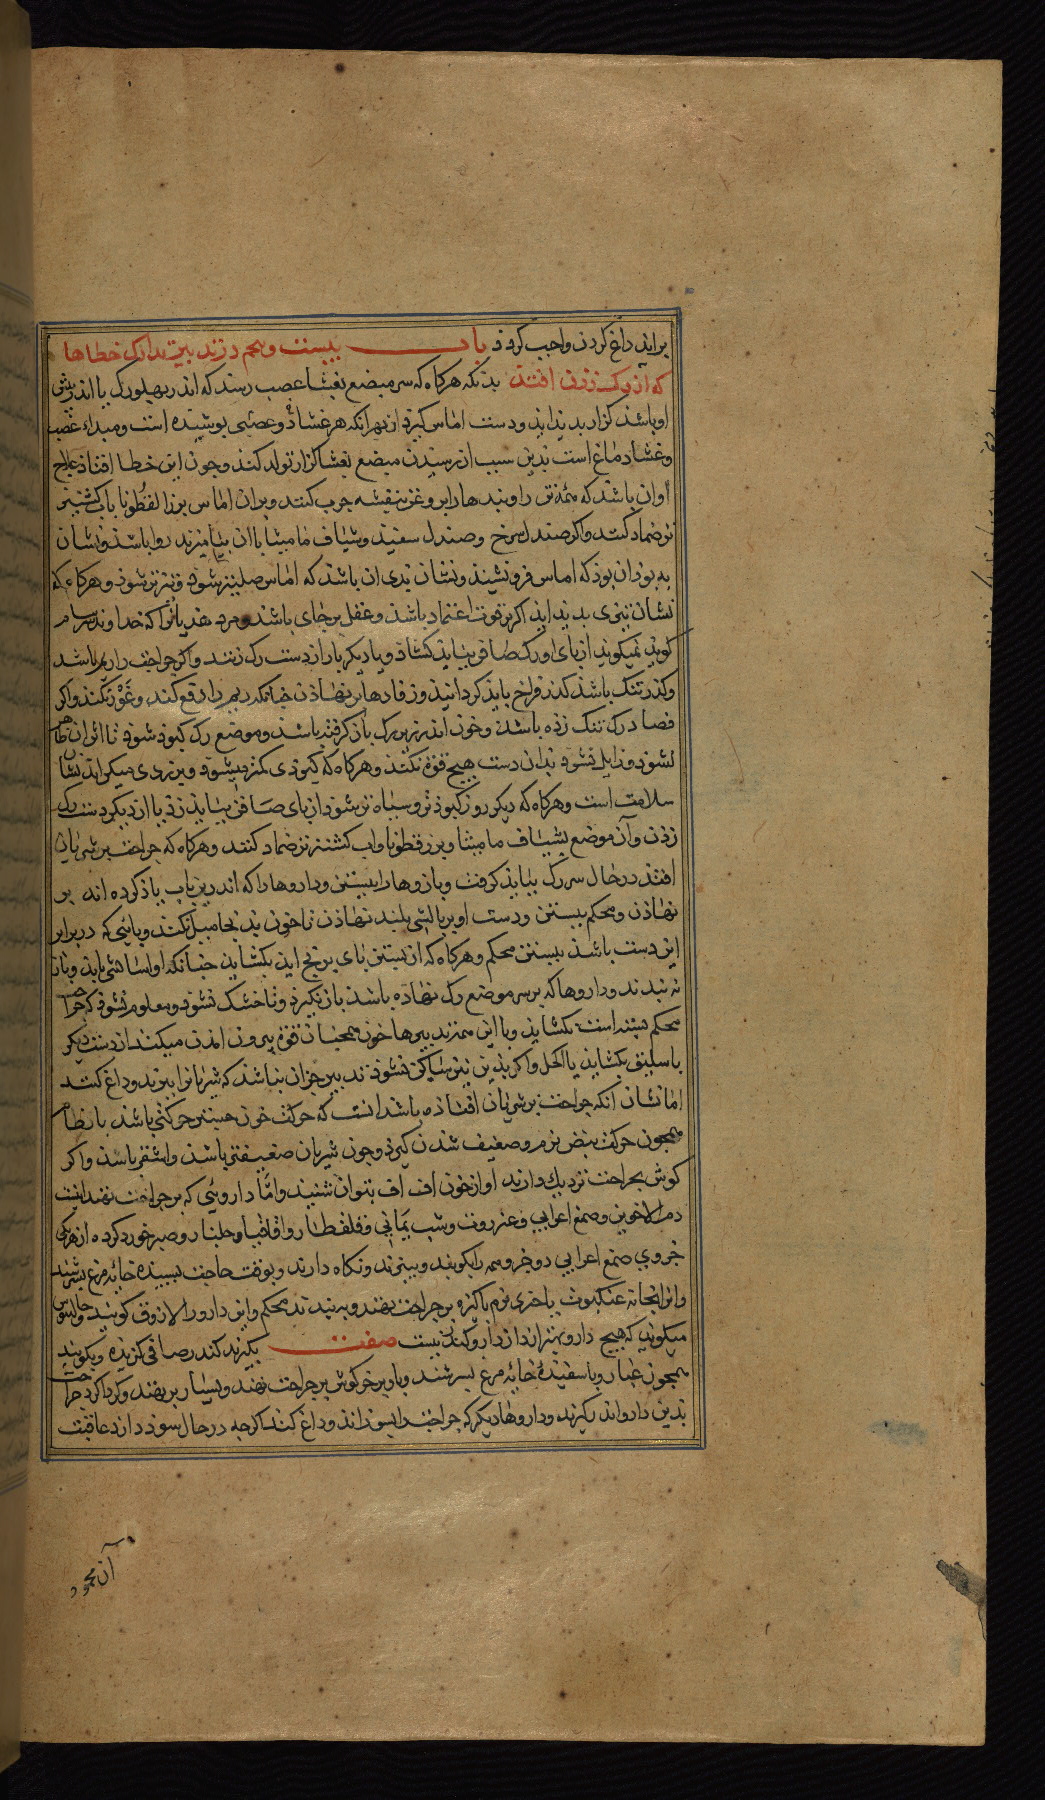 براید داغ کردن واجب کردد باب بیست و پنجم در تدبیر تدارک خطاها
که از رک زدن افتد بدانکه هرکاه که سر مبضع بغشا عصب رسد که اندر پهلورک یا اندر پش
او باشد کزاز بدید اید و دست اماس کیرد از بهر انکه هر غشا و عصبی پوشیده است و مبداء عصب
و غشا دماغ است بدین سبب از رسیدن مبضع بغشا کزاز تولد کند و چون این خطا افتاد علاج
او ان باشد که همه تن را و بندها را بروغن بنفشه چرب کنند و بران اماس بزرالقطونا باب کشنیز
تر ضماد کنند واکر صندل سرخ و صندل سفید و شیاف مامیثا با ان بیامیزند روا باشد و نشان
به بوذن ان بوذ که اماس فرو نشیند و نشان بدی ان باشد که اماس صلبتر شود و بتر شود و هرکاه که
نشان بتری بدید اید اکر بر قوت اعتماد باشد و عقل بر جای باشد و مرد هذیانها که خداوند سرسام
کوید نمیکوید از پای او رک صافن بباید کشاد و یا دیکر بار از دست رک زنند و اکر جراحت را ریم باشد
و کذر تنک باشد کذر فراخ باید کردانید و زفادها بر نهادن چنانکه ریم را دفع کند و غور نکند و اکر
فصاد رک تنک زده باشد و خون اندر زیر رک باز کرفته باشد و موضع رک کبود شود تا اثر ان
نشود و زایل نشود بدان دست هیچ قوه نکند و هرکاه که کبودی کمتر میشود و بزردی میکراید نشان
سلامت است و هرکاه که دیکر روز کبودتر و سیاه تر شود از پای صافن بباید زد یا از دیکر دست رک
زدن و آن موضع بشیاف مامیثا و بزرقطونا و اب کشنیز تر ضماد کنند و هرکاه که جراحت بر شریان
افتد در حال سر رک بباید کرفت و بازوها را ببستن و داروها را که اندرین باب یاذ کرده اند بر
نهادن و محکم ببستن و دست او بر بالشی بلند نهادن تا خون بدنجا میل نکند و پایئی که دربرابر
این دست باشد ببستن محکم و هرکاه که از بستن پای برنج اید بکشاید چنانکه او اسایشی یابد و باز
نه بندند و داروها که بر سر موضع رک نهاده باشد باز نکیرد و تا خشک نشود و معلوم نشود که جراحت
محکم بسته است بکشاید و با این همه تدبیرها خون همچنان قوه بیرون امدن میکند از دست دیکر
باسلیق بکشاید یا اکحل واکر بدین نیز ساکن نشود تدبیر جز ان نباشد که شریانرا ببرند و داغ کنند
اما نشان انکه جراحت بر شریان افتاده باشد انست که حرکت خون جستن حرکتی باشد بانظام
همچون حرکت نبض نرم و ضعیف شدن کیرد و چون شریان ضعیفتی باشد و اشقر باشد واکر
کوش بجراحت نزدیک دارند اواز خون اف اف بتوان شنید و امّا داروئی که بر جراحت نهند اینست
دم الاخوین و صمغ اعرابی و عنزروت و شب یمانی و قلقطار و اقاقیا و جلنار و صبر خورد کرده از هر یکی
جزوی صمغ اعرابی دو جزو همه را بکوبند و بیزند و نکاه دارند و بوقت حاجت بسپیده خایه مرغ بسرشند
و اندر خانه عنکبوت یا خزی نرم پاکیزه بر جراحت نهند و ببندند محکم و این دارو را لازوق کویند و جالینوس
میکوید که هیچ دارو بهتر از داز دارو کندر نیست صفت بکیرند کندر صافی کزیده و بکوبند
همچون غبار و با سفیدۀ خایه مرغ بسرشند و با وبر خرکوش بر جراحت نهند و بسیار بر نهند و کرداکرد جراحت
بدین دارو اندر بکیرند و داروها دیکر که جراحت را بسوزاند و داغ کند اکرچه در حال سوذ دارد عاقبت
آن محمود